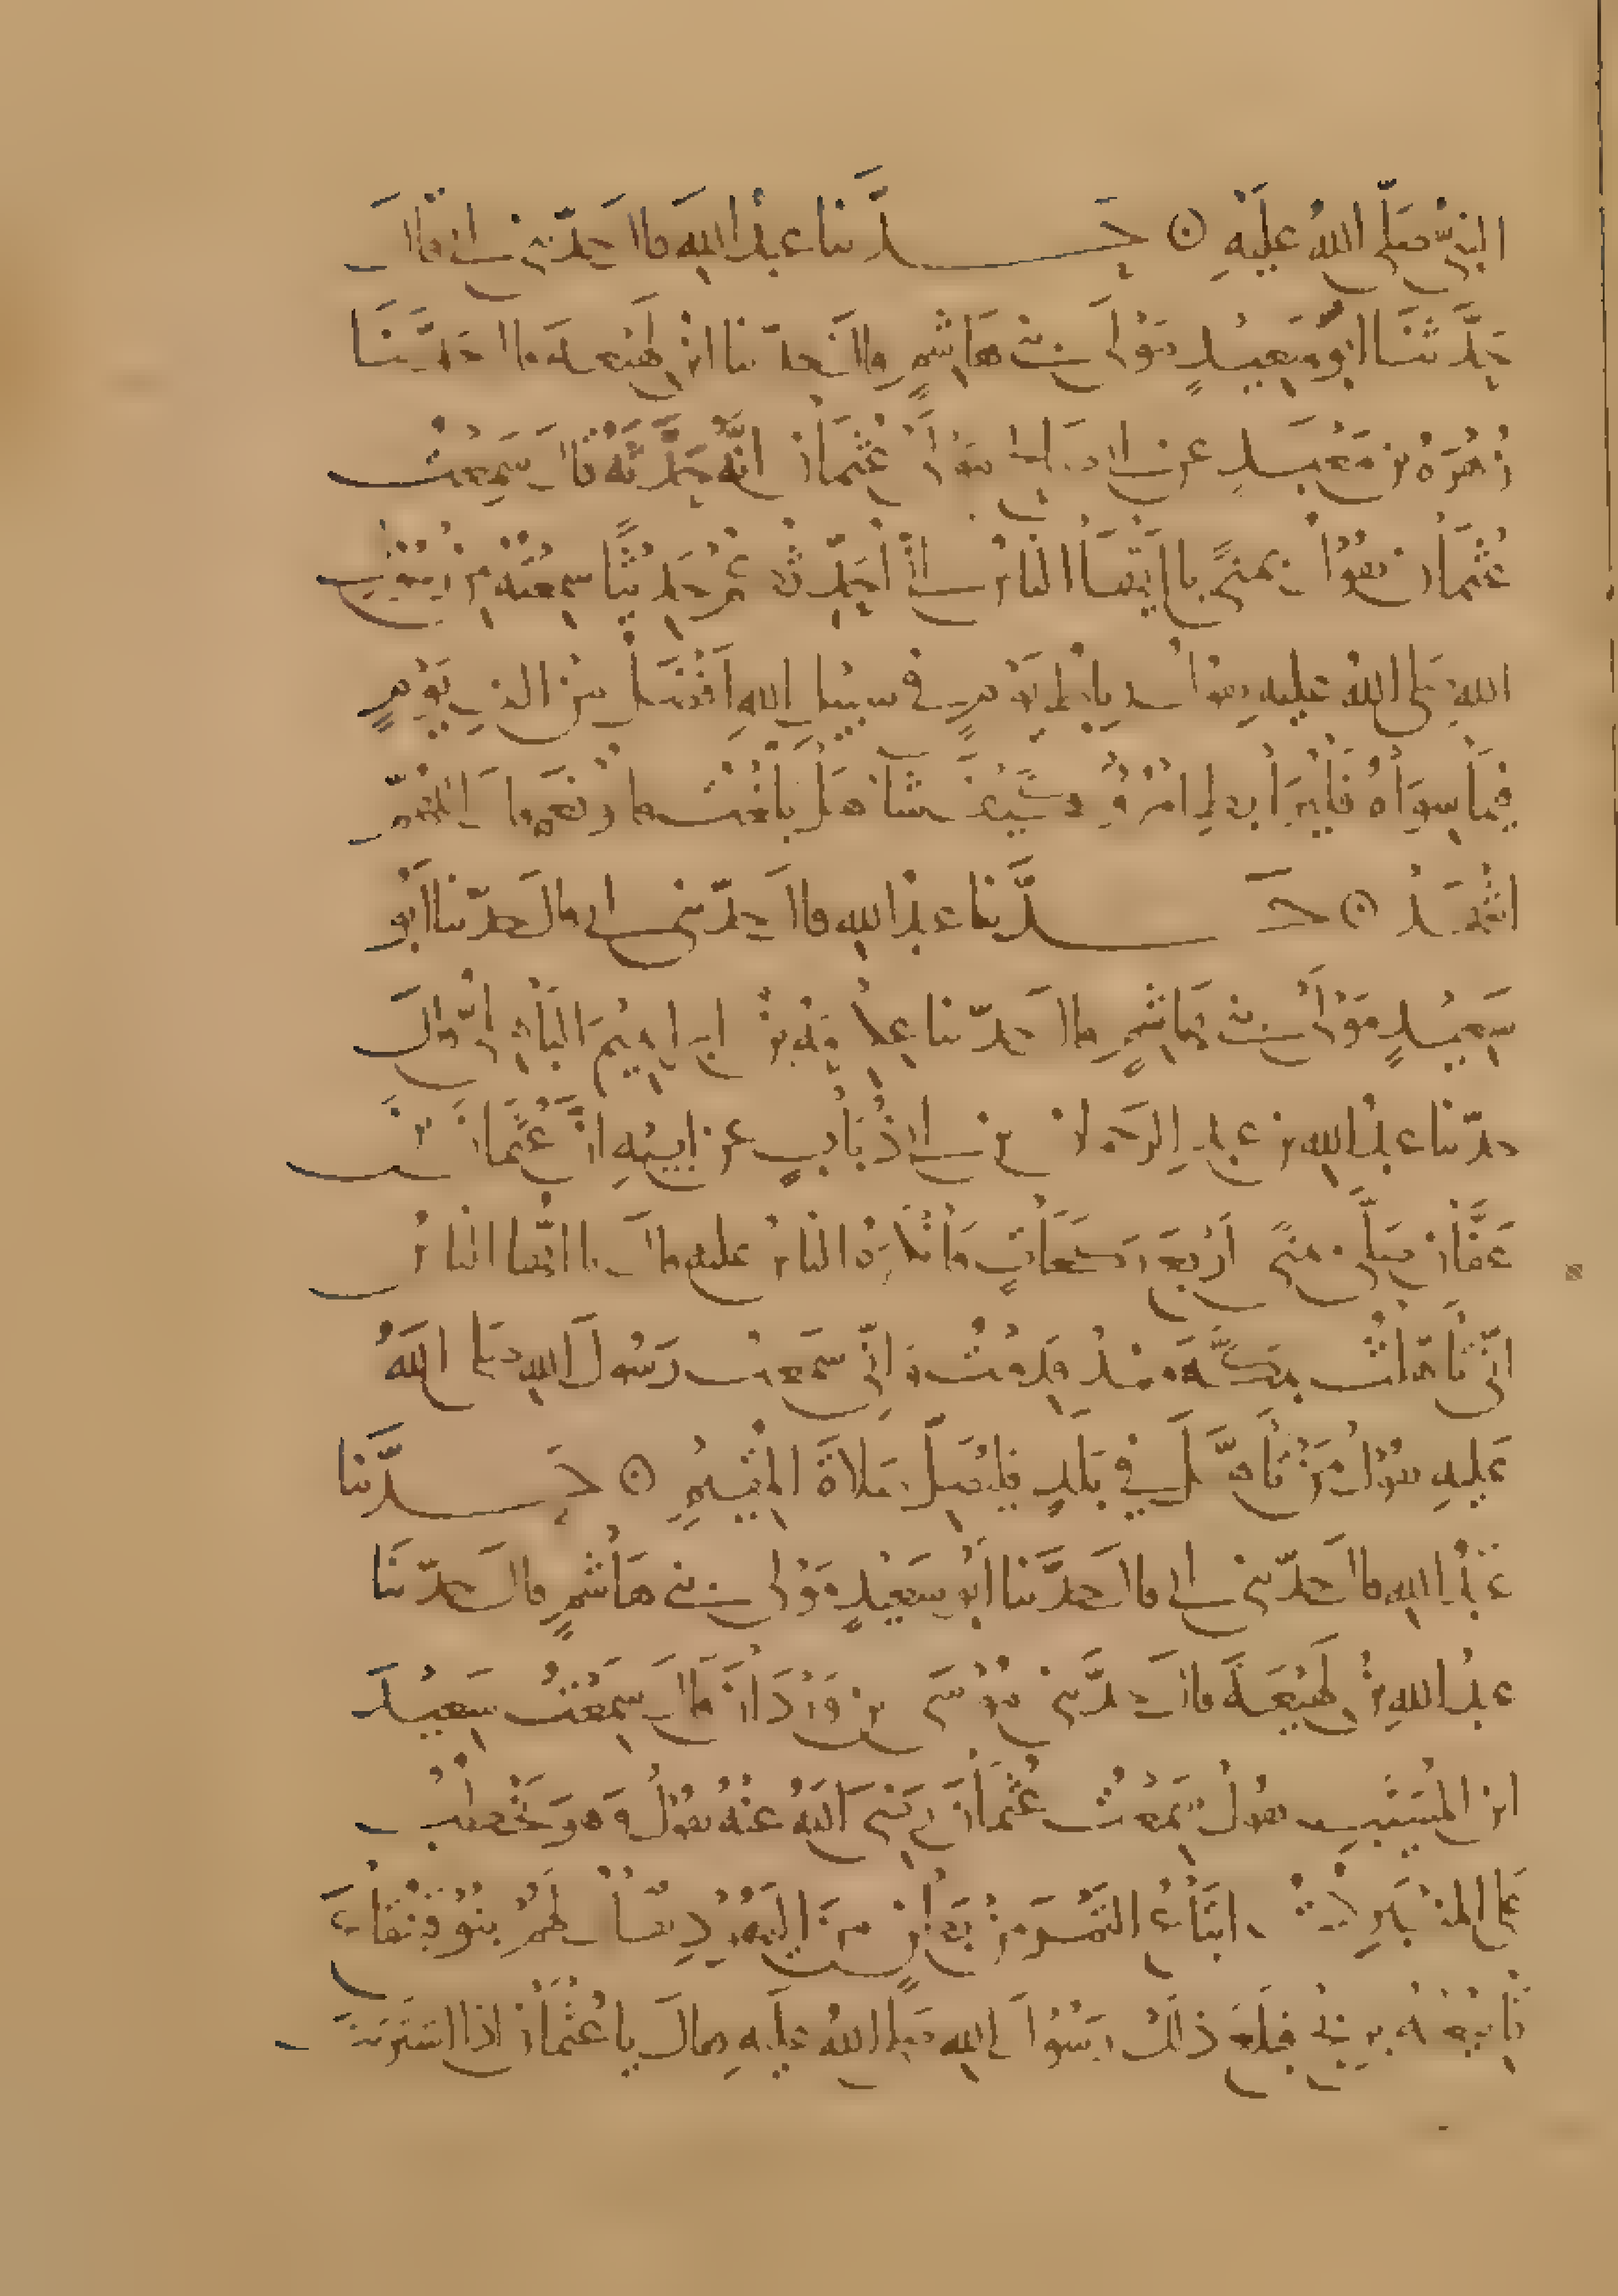 النبي صلى الله عليه ⊙ حدثنا عبد الله قال حدثني ابي قال
حدثنا ابو سعيد مولى بني هاشم قال حدثنا ابن لهيعة قال حدثنا
زهرة بن معبد عن ابي صالح مولى عثمان انه حدثه قال سمعت
عثمان يقول بمنى يا ايها الناس اني احدثكم حديثا سمعته من رسول
الله صلى الله عليه يقول رباط يوم في سبيل الله افضل من الف يوم
فيما سواه فليرابط امرؤ كيف شاء هل بلغت قالوا نعم قال اللهم
اشهد ⊙ حدثنا عبد الله قال حدثني ابي قال حدثنا ابو
سعيد مولى بني هاشم قال حدثنا عكرمة بن ابراهيم الباهلي قال
حدثنا عبد الله بن عبد الرحمن بن ابي ذباب عن ابيه ان عثمان بن
عفان صلى بمنى اربع ركعات فانكره الناس عليه فقال يا ايها الناس
اني تأهلت بمكة منذ قدمت واني سمعت رسول الله صلى الله
عليه يقول من تأهل في بلد فليصل صلاة المقيم ⊙ حدثنا
عبد الله قال حدثني ابي قال حدثنا ابو سعيد مولى بني هاشم قال حدثنا
عبد الله بن لهيعة قال حدثني موسى بن وردان قال سمعت سعيد
ابن المسيب يقول سمعت عثمان رضي الله عنه يقول وهو يخطب
على المنبر كنت ابتاع التمر من بطن من اليهود يقال لهم بنو قينقاع
فابيعه بربح فبلغ ذلك رسول الله صلى الله عليه فقال يا عثمان اذا اشتريت